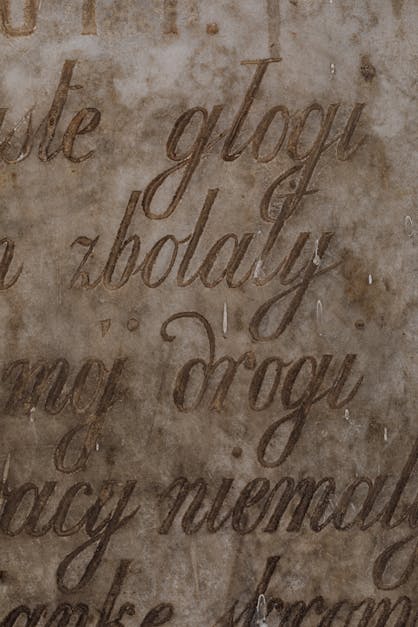 ste głogi
zbolały
mój drogi
acy niemały